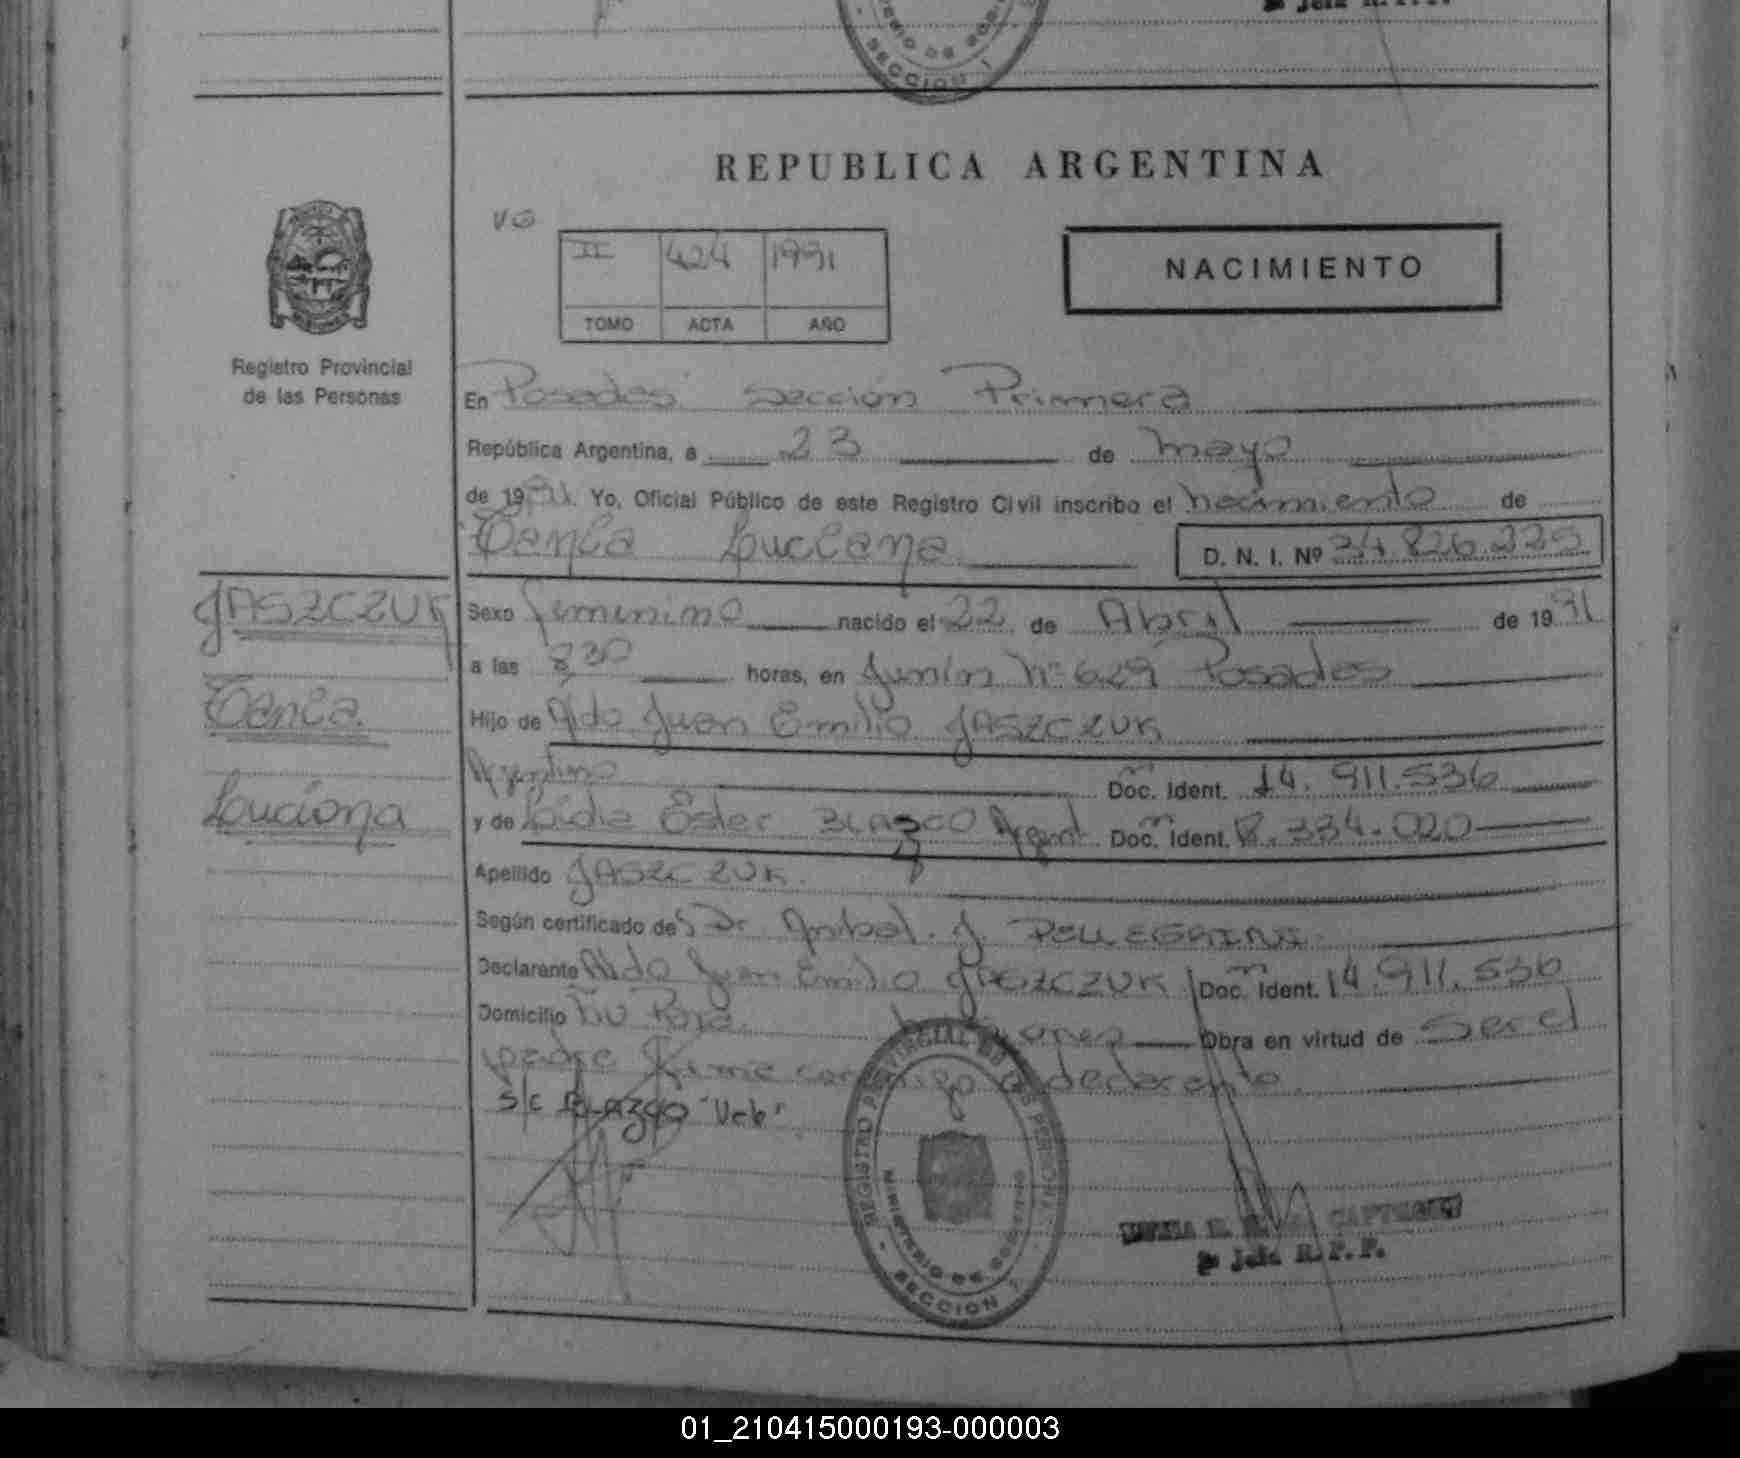 Jefe R.P.P.
MINISTERIO DE GOBIERNO
SECCION 1
REPUBLICA ARGENTINA
VG
II 424 1991
TOMO ACTA AÑO
NACIMIENTO
Registro Provincial
de las Personas
En Posadas Sección Primera
República Argentina, a 23 de mayo
de 1991. Yo, Oficial Público de este Registro Civil inscribo el nacimiento de
Tania Luciana D. N. I. Nº 34.826.225
JASZCZUK
Tania
Luciana
Sexo femenino nacido el 22 de Abril de 1991
a las 830 horas, en Junín nº 629 Posadas
Hijo de Aldo Juan Emilio JASZCZUK
Argentino Doc. Ident. 14.911.536
y de Ester BLAZCO Argent. Doc. Ident. .334.020
Apellido JASZCZUK
Según certificado de Dr. Anibal J. PELLEGRINI
Declarante Aldo Juan Emilio JASZCZUK Doc. Ident. 14.911.536
Domicilio Obra en virtud de Ser el
padre Firma conmigo el declarante
S/C BLAZCO "Vale"
REGISTRO PROVINCIAL DE LAS PERSONAS
MINISTERIO DE GOBIERNO
SECCION 1
Jefe R.P.P.
01_210415000193-000003